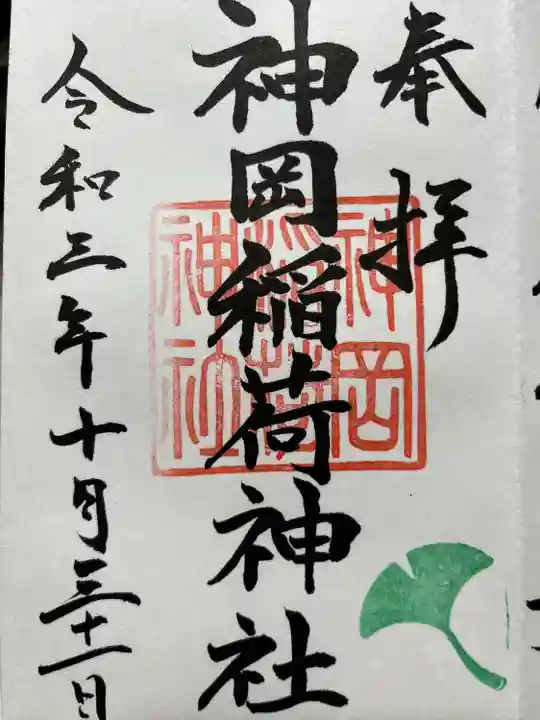 奉拝
神岡稲荷神社
神岡
稲荷
神社
令和三年十月三十一日